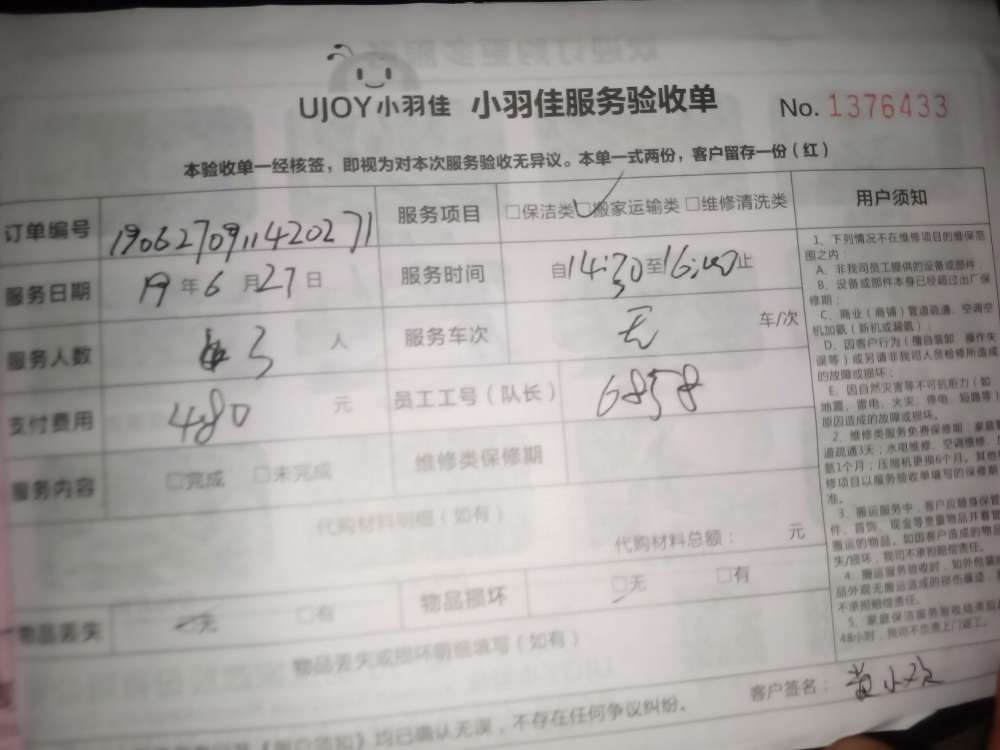 UJOY小羽佳 小羽佳服务验收单 No. 1376433
本验收单一经核签，即视为对本次服务验收无异议。本单一式两份，客户留存一份（红）
订单编号 190627091142027 1 服务项目 □保洁类 □搬家运输类 □维修清洗类
服务日期 19年6月27日 服务时间 自14:30至16:00止
服务人数 3 人 服务车次 无 车/次
支付费用 480 元 员工工号（队长） 6858
服务内容 □完成 □未完成 维修类保修期
代购材料明细（如有）
代购材料总额： 元
物品丢失 □无 □有 物品损坏 □无 □有
物品丢失或损坏明细填写（如有）
《用户须知》均已确认无误，不存在任何争议纠纷。
客户签名： 黄小
用户须知
1、下列情况不在维修项目的维保范
围之内：
A、非我司员工提供的设备或部件，
B、设备或部件本身已经超过出厂保
修期；
C、商业（商铺）管道疏通、空调空
机加氟（新机或漏氟）；
D、因客户行为（擅自装卸、操作失
误等）或另请非我司人员检修所造成
的故障或损坏；
E、因自然灾害等不可抗拒力（如
地震、雷电、火灾、停电、短路等）
原因造成的故障或损坏。
2、维修类服务免费保修期：家庭
道疏通3天；水电维修、空调维修、
氟1个月；压缩机更换6个月。其他
修项目以服务验收单填写的保修期
准。
3、搬运服务中，客户应随身保管
件、首饰、现金等贵重物品并看管
搬运的物品。如因客户造成的物品
失/损坏，我司不承担赔偿责任。
4、搬运服务验收时，如外包装
品外观无搬运造成的损伤痕迹，
不承担赔偿责任。
5、家庭保洁服务验收结束后
48小时，我司不负责上门返工。